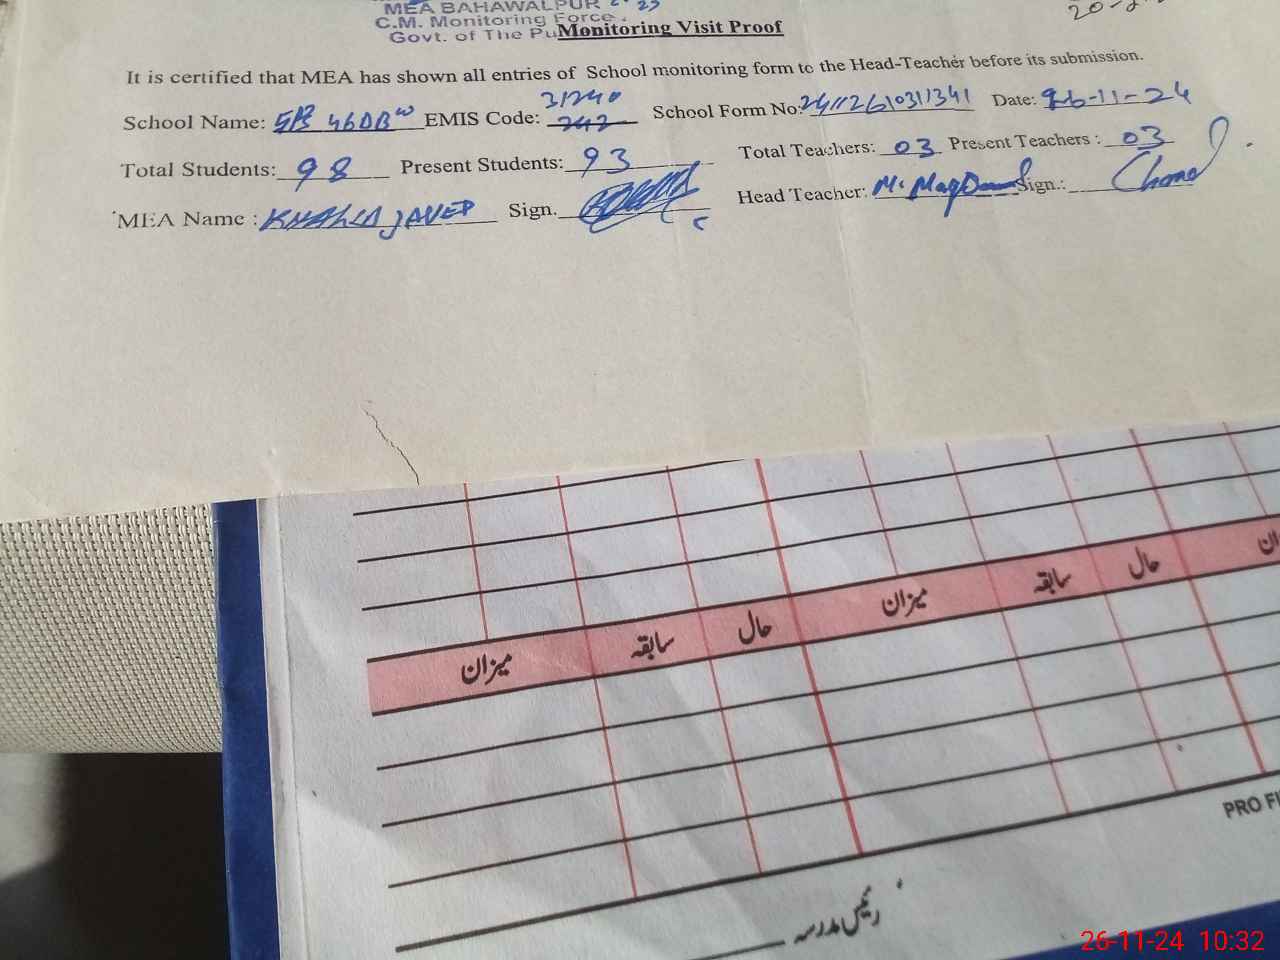 MEA BAHAWALPUR
C.M. Monitoring Force
Govt. of The Pu
Monitoring Visit Proof
It is certified that MEA has shown all entries of School monitoring form to the Head-Teacher before its submission.
School Name: 46DB EMIS Code: 31240 242 School Form No: Date: 26-11-24
Total Students: 98 Present Students: 93 Total Teachers: 03 Present Teachers : 03
MEA Name : JAVED Sign. Head Teacher: Sign.:
میزان سابقہ حال میزان سابقہ حال
PRO
رئیس مدرسہ
26-11-24 10:32